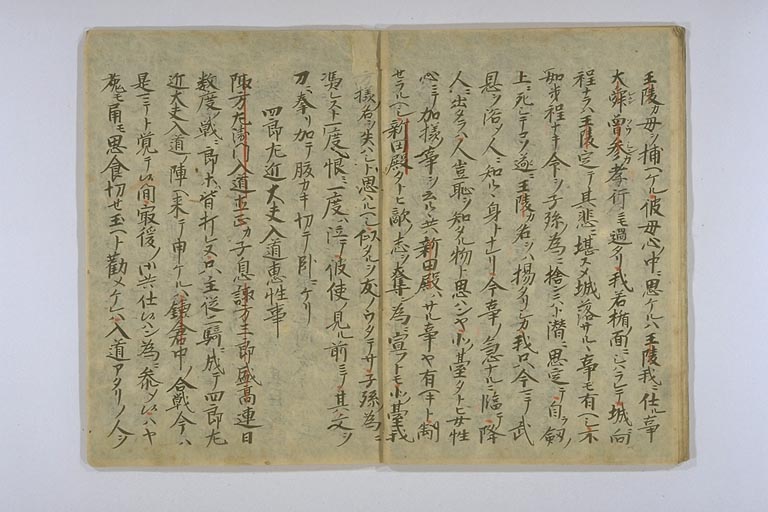 王陵カ母ヲ捕ヘケル彼母心中ニ思ケルハ王陵我ニ仕ル事
大舜曽参孝行ニモ過タリ我若楯ノ面ニシハラレテ城ニ向
程ナラハ王陵定テ其悲ニ堪スメ城落サルヽ事モ有ヘシ不
如幾程ナキ命ヲ子孫ノ為ニ捨ンニハト潜ニ思定テ自ラ剱ノ
上ニ死シテコソ遂ニ王陵カ名ヲハ揚タリシカ我只今ニテ武
恩ヲ浴ノ人ニ知ルヽ身トナレリ今事ノ急ナルニ臨テ降
人ニ出タラハ人豈恥ヲ知タル物ト思ハンヤ小ツ基タトヒ女性
心ニテ加様ノ事ヲ云ルヽ共新田殿ハサル事ヤ有ヘキト制
セラルヘシ新田殿タトヒ敵ノ志ヲ奪ン為ニ宣フトモ小ツ基我
方様ノ名ヲ失ハシト思ハルヘシ似タルヲ友ノウタテサヨ子孫ノ為ニ
憑レスト一度ハ恨ミ一度ハ泣テ彼使ノ見ル前ニテ其文ヲ
刀ニ拳リ加テ腹カキ切テ臥ニケリ
四郎左近大夫入道恵性事
諏方左衛門入道直正カ子息諏方三郎盛高連日
数度ノ戦ニ郎等皆打レヌ只主従二騎ニ成テ四郎左
近大夫入道ノ陣ヘ来テ申ケルハ鎌倉中ノ合戦今ハ
是ニテト覚テ候間最後ノ御共仕候ハン為ニ参テ候ハヤ
兎モ角モ思食切セ玉ヘト勧メケレハ入道アタリノ人ヲ